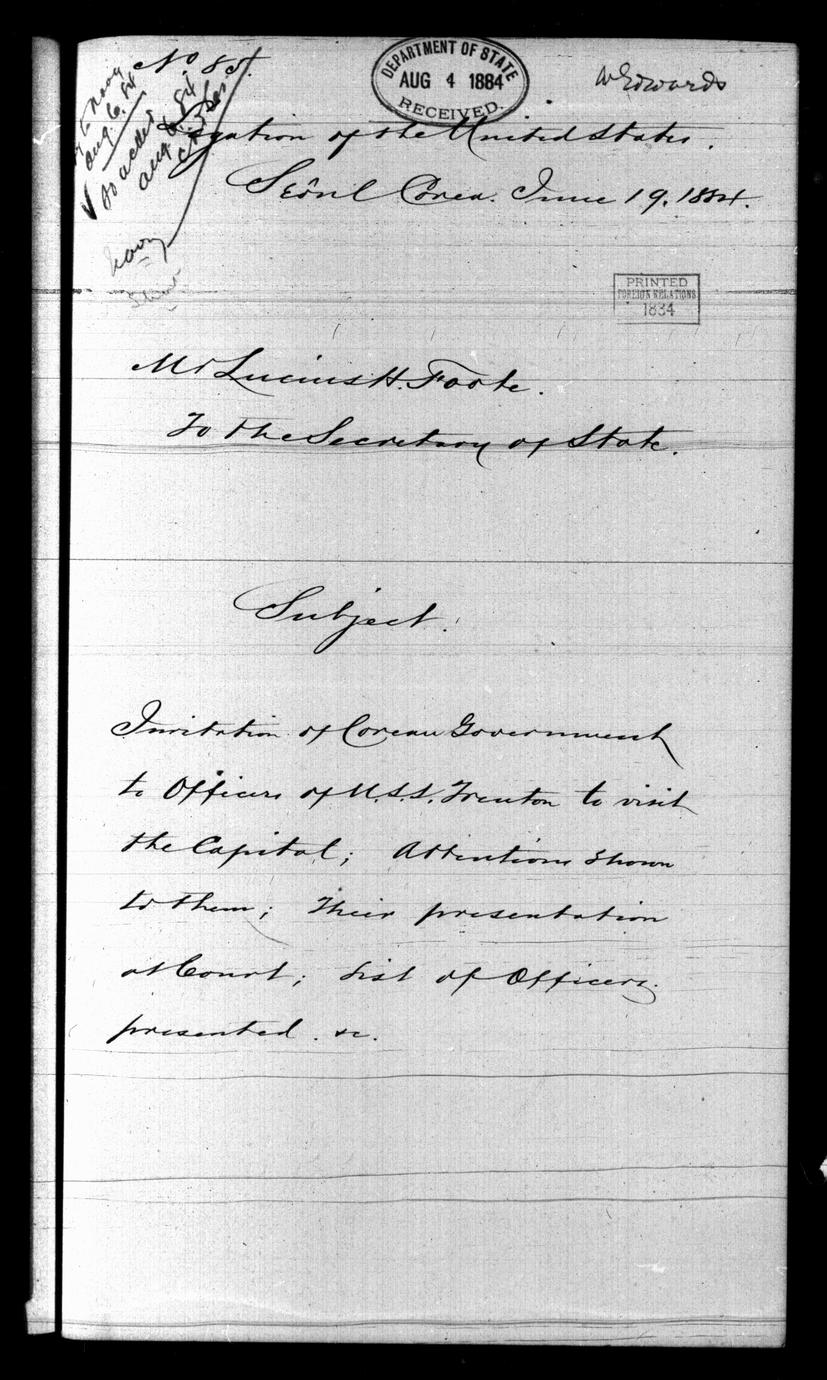 No 85.
DEPARTMENT OF STATE
AUG 4 1884
RECEIVED.
W Edwards
to Navy
Aug. 6. 84
so acted
Aug 84
Navy
Legation of the United States.
Seoul Corea. June 19. 1884.
PRINTED
FOREIGN RELATIONS
1884
Mr Lucius H. Foote.
To the Secretary of State.
Subject.
Invitation of Corean Government
to Officers of U.S.S. Trenton to visit
the Capital; Attentions shown
to them; Their presentation
at Court; List of Officers
presented. &c.